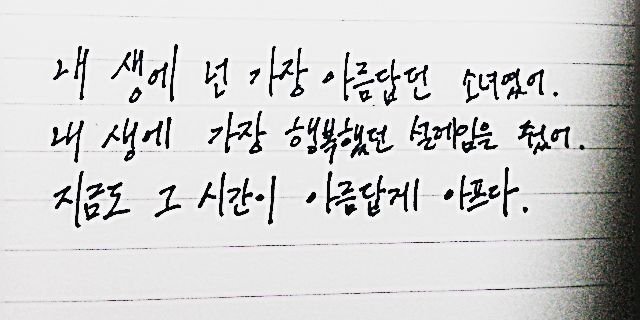 내 생에 넌 가장 아름답던 소녀였어.
내 생에 가장 행복했던 설레임을 줬어.
지금도 그 시간이 아름답게 아프다.